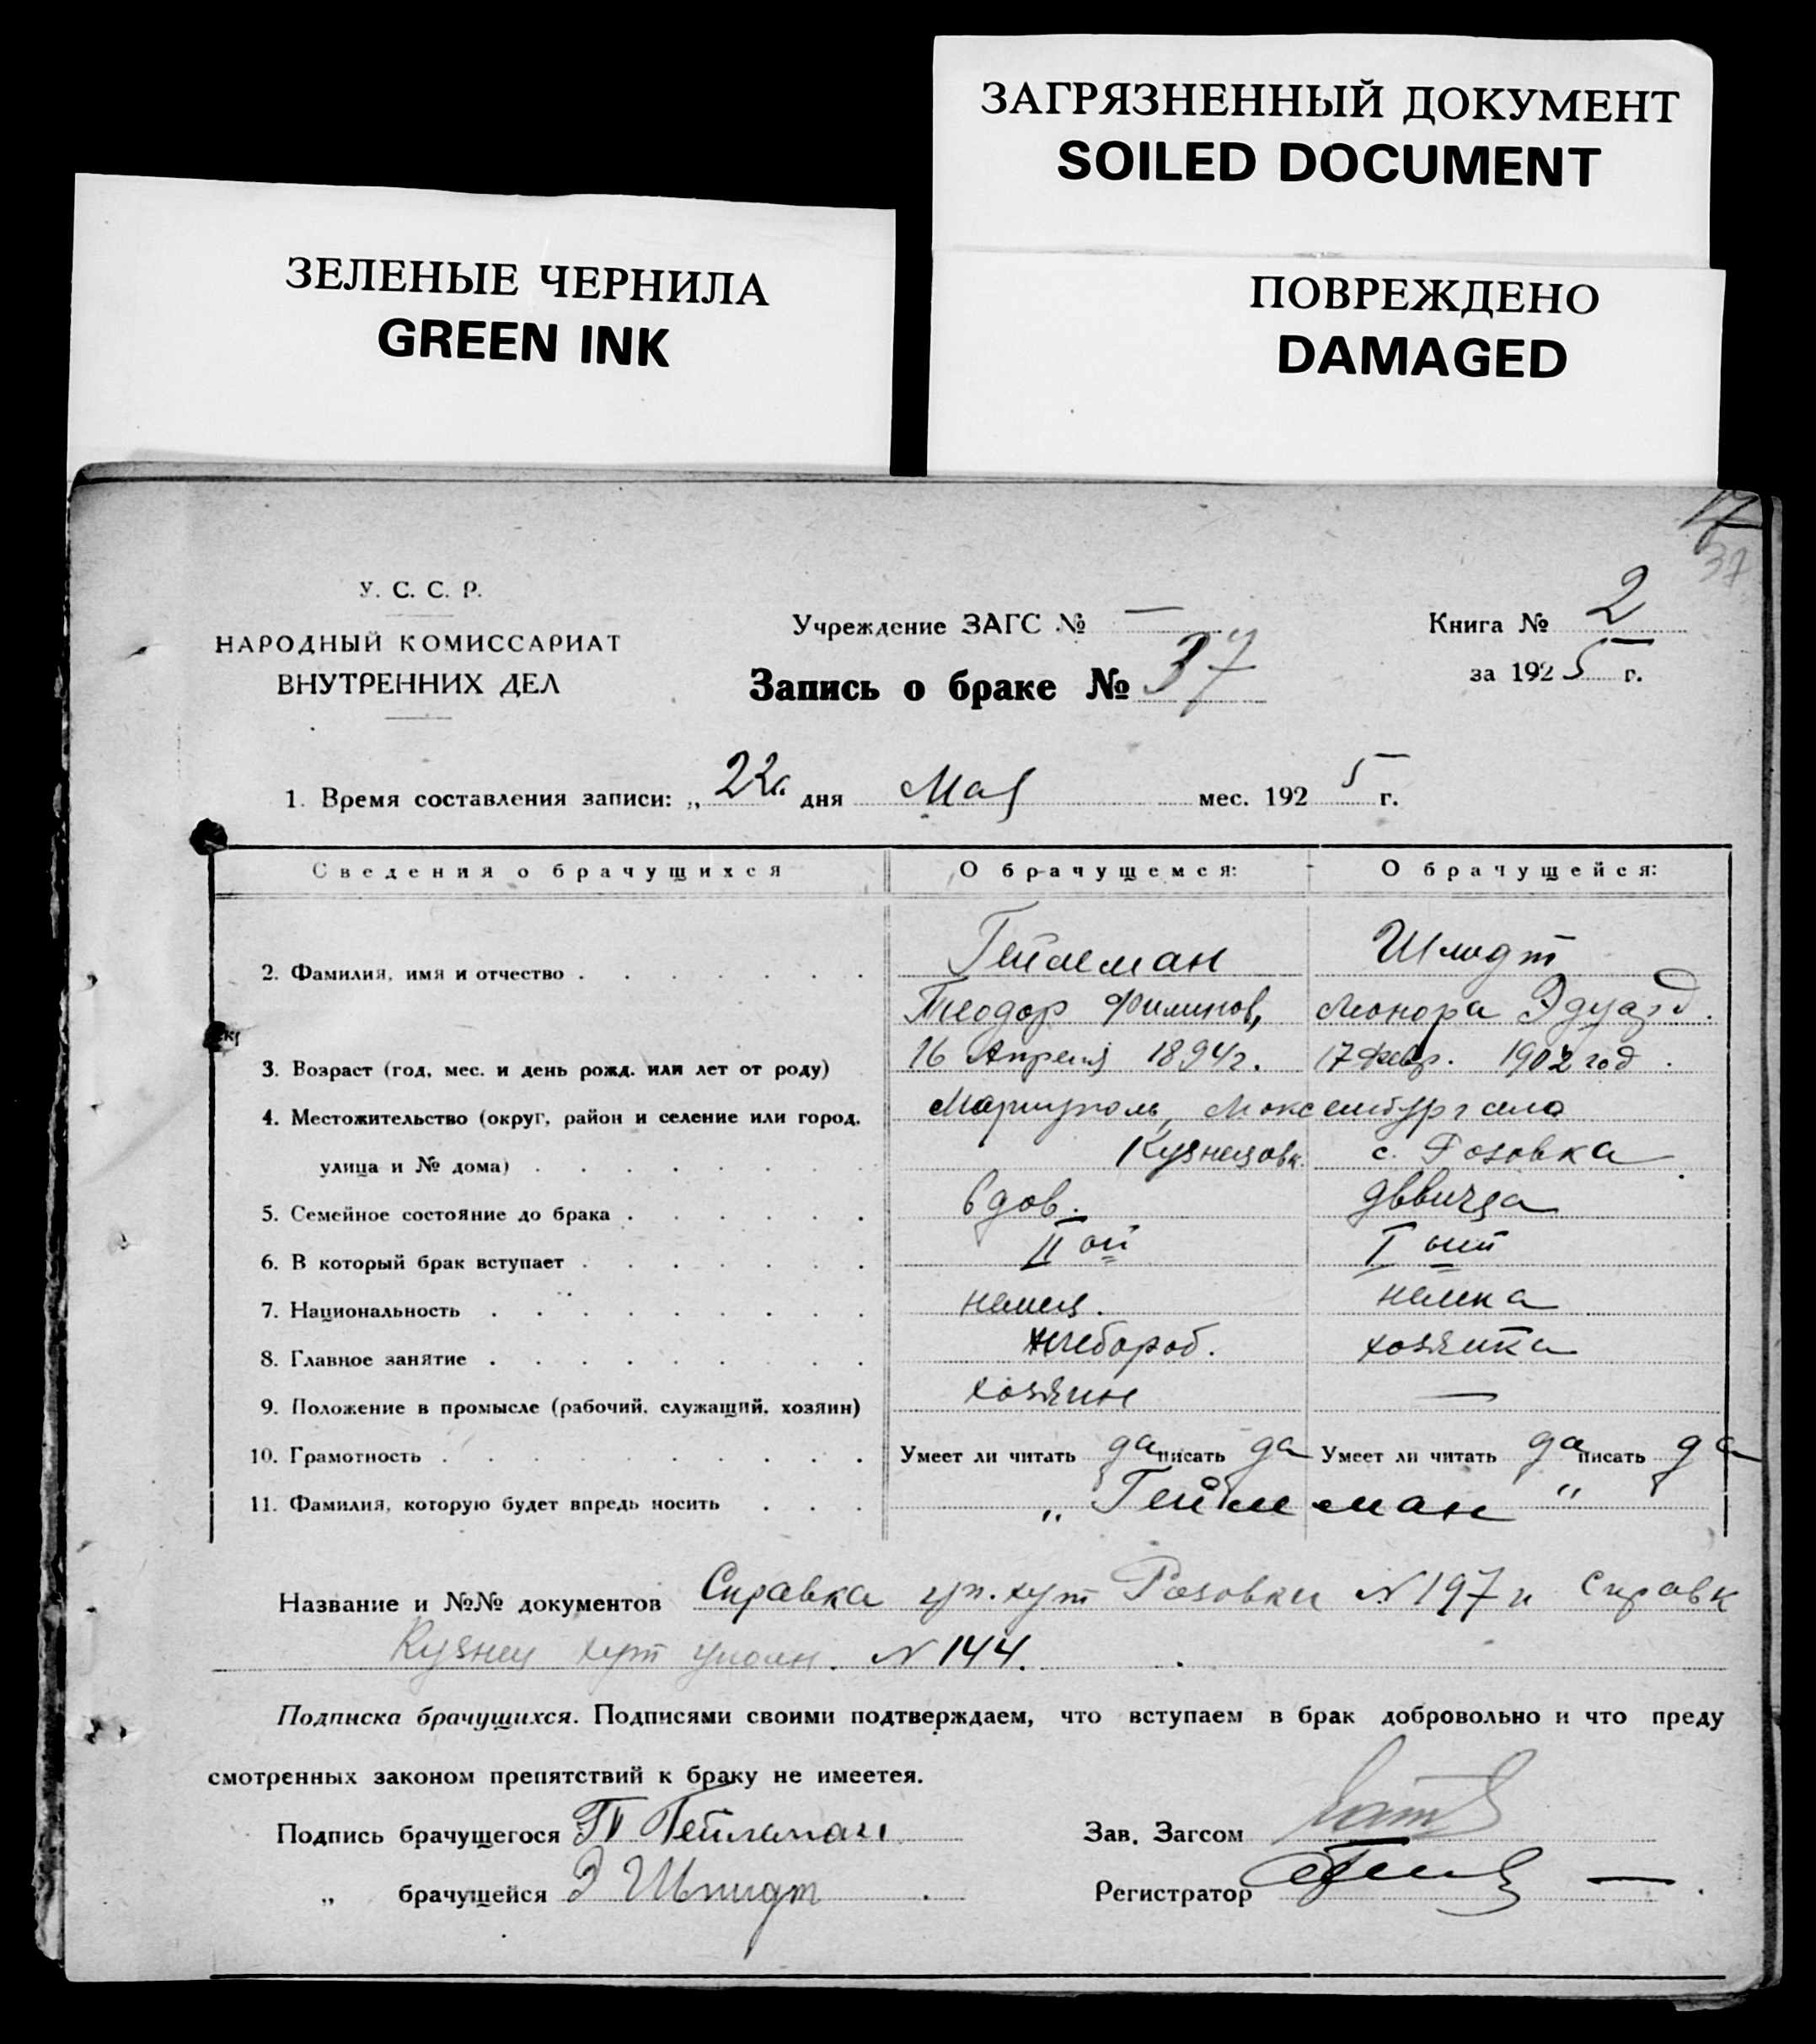 ЗАГРЯЗНЕННЫЙ ДОКУМЕНТ
SOILED DOCUMENT
ЗЕЛЕНЫЕ ЧЕРНИЛА
GREEN INK
ПОВРЕЖДЕНО
DAMAGED
17
37
У. С. С. Р.
НАРОДНЫЙ КОМИССАРИАТ
ВНУТРЕННИХ ДЕЛ
Учреждение ЗАГС № —
Запись о браке № 37
Книга № 2
за 1925 г.
1. Время составления записи: „22" дня Мая мес. 1925 г.
Сведения о брачущихся О брачущемся: О брачущейся:
2. Фамилия, имя и отчество Гейльман Шмидт
Теодор Филипов, Леонора Эдуард.
3. Возраст (год, мес. и день рожд. или лет от роду) 16 Апреля 1894 г. 17 Февр. 1902 год
4. Местожительство (округ, район и селение или город, Мариуполь,
улица и № дома) Кузнецовк. с. Розовка
5. Семейное состояние до брака вдов. дввица
6. В который брак вступает II ой I ый
7. Национальность немец. немка
8. Главное занятие хлебороб. хозяйка
9. Положение в промысле (рабочий, служащий, хозяин) хозяин —
10. Грамотность Умеет ли читать да писать да Умеет ли читать да писать да
11. Фамилия, которую будет впредь носить „ Гейльман "
Название и №№ документов Справка уп. хут Розовки № 197 и справк
Кузнец хут уполн. № 144.
Подписка брачущихся. Подписями своими подтверждаем, что вступаем в брак добровольно и что преду
смотренных законом препятствий к браку не имеетея.
Подпись брачущегося Гейльман Зав. Загсом
„ брачущейся Э Шмидт Регистратор